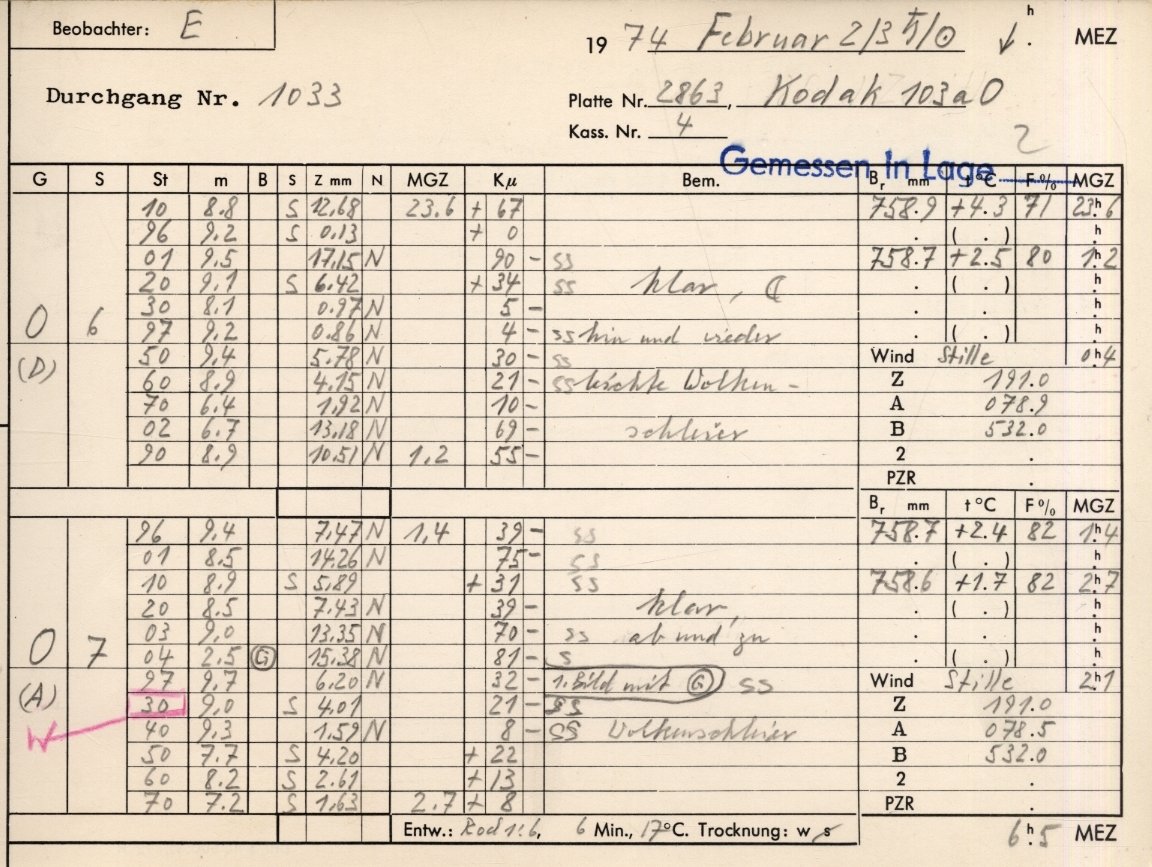 Beobachter: E
19 74 Februar 2/3 ♄/⊙ h . MEZ
Durchgang Nr. 1033
Platte Nr. 2863, Kodak 103aO
Kass. Nr. 4
2
Gemessen in Lage
G S St m B S Z mm N MGZ Kμ Bem. Br mm t°C F% MGZ
10 8.8 S 12,68 23.6 + 67 758.9 +4.3 71 23h.6
96 9.2 S 0.13 + 0 . ( . ) h.
01 9.5 17,15 N 90 - ss 758.7 +2.5 80 1h.2
20 9.1 S 6.42 + 34 ss klar, ☾ . ( . ) h.
30 8.1 0.97 N 5 - . . h.
0 6 97 9.2 0.86 N 4 - ss hin und wieder . ( . ) h.
(D) 50 9.4 5.78 N 30 - ss Wind Stille 0h.4
60 8.9 4.15 N 21 - ss leichte Wolken - Z 191.0
70 6.4 1,92 N 10 - A 078.9
02 6.7 13,18 N 69 - schleier B 532.0
90 8.9 10.51 N 1.2 55 - 2 .
PZR .
Br mm t°C F% MGZ
96 9.4 7.47 N 1,4 39 - ss 758.7 +2.4 82 1h.4
01 8.5 14.26 N 75 - ss . ( . ) h.
10 8.9 S 5.89 + 31 ss 758.6 +1.7 82 2h.7
20 8.5 7.43 N 39 - klar, . ( . ) h.
03 9.0 13.35 N 70 - ss ab und zu . . h.
0 7 04 2.5 G 15.38 N 81 - s . ( . ) h.
97 9.7 6.20 N 32 - 1. Bild mit G ss Wind Stille 2h.1
(A) 30 9.0 S 4.01 21 - ss Z 191.0
W 40 9.3 1.59 N 8 - ss Wolkenschleier A 078.5
50 7.7 S 4,20 + 22 B 532.0
60 8.2 S 2.61 + 13 2 .
70 7.2 S 1,63 2.7 + 8 PZR .
Entw.: Rod 1:6, 6 Min., 17°C. Trocknung: w s 6h.5 MEZ